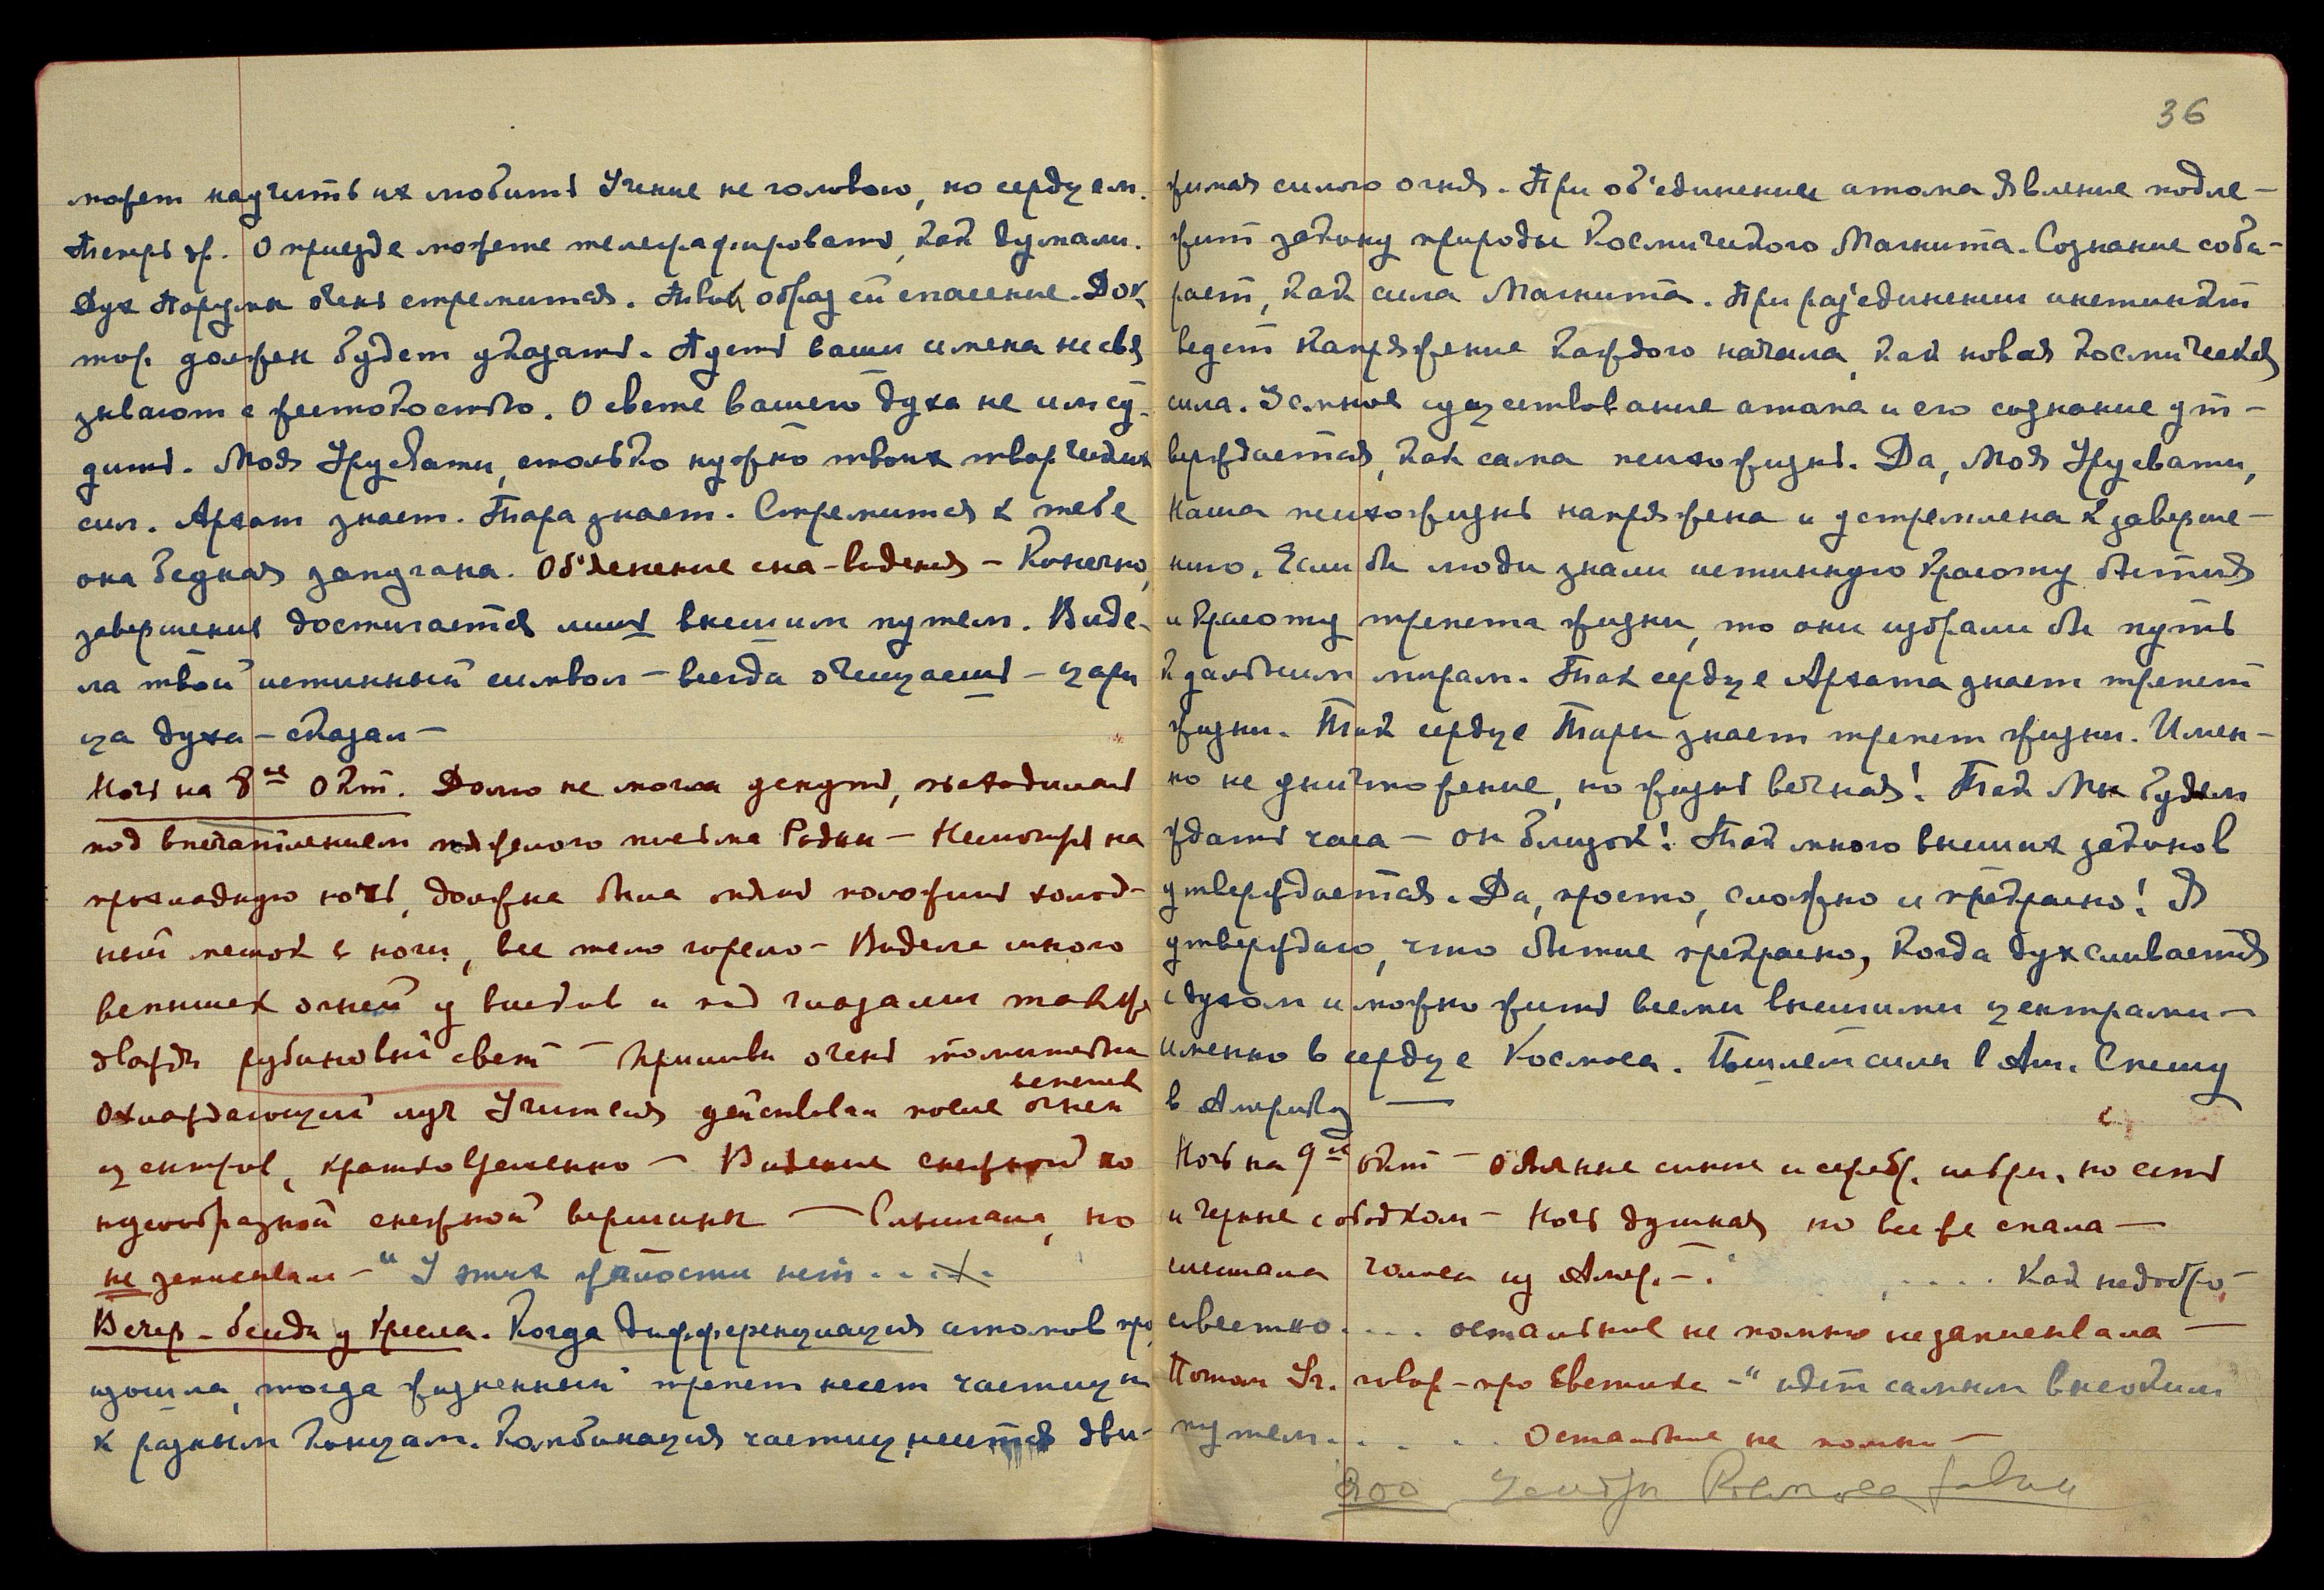 может научить их любить Учение не головою, но сердцем.
Теперь др. О приезде можете телеграфировать, как думали.
Дух Порумы очень стремится. Твой образ ей спасение. Док
тор. должен будет указать. Пусть ваши имена не свя
зывают с жестокостью. О свете вашего духа не им су-
дить. Моя Урусвати, столько нужно твоих творческих
сил. Архат знает. Тара знает. Стремится к тебе
она бедная запугана. Объяснение сна-видения – Конечно,
завершение достигается лишь высшим путем. Виде-
ла твой истинный символ – всегда очищаешь – цари
ца духа – сказал –
Ночь на 8ое Окт. Долго не могла уснуть, находилась
под впечатлением тяжелого письма Радны – Несмотря на
прохладную ночь, должна была опять положить холод-
ный мешок в ноги, все тело горело – Видела много
вспышек огней у висков и над глазами также
дважды рубиновый свет – приливы очень томительны
вспышек
Охлаждающий луч Учителя действовал после огней
центров, кратковременно – Видение снежной ко
нусообразной снежной вершины – Слышала, но
не записывала – "У этих жалости нет . . . .
Вечер – беседа у Кресла. Когда дифференциация атомов про
изошла, тогда жизненный трепет несет частицы
к разным концам. Комбинация частиц несется дви-
36
жимая силою огня. При об'единении атома явление подле –
жит закону природы Космического Магнита. Сознание соби-
рает, как сила Магнита. При раз'единении инстинкт
ведет напряжение каждого начала, как новая космическая
сила. Земное существование атома и его сознание ут –
верждается, как сама психожизнь. Да, Моя Урусвати,
Наша психожизнь напряжена и устремлена к заверше –
нию. Если бы люди знали истинную красоту бытия
и красоту трепета жизни, то они избрали бы путь
к дальним мирам. Так сердце Архата знает трепет
жизни. Так сердце Тары знает трепет жизни. Имен –
но не уничтожение, но жизнь вечная! Так Мы будем
ждать часа – он близок! Так много высших законов
утверждается. Да, просто, сложно и прекрасно! Я
утверждаю, что бытие прекрасно, когда дух сливается
с духом и можно жить всеми высшими центрами –
именно в сердце Космоса. Пошлем силы в Ам. Спешу
в Америку –
Ночь на 9ое окт – обычные синие и серебр. искры, но есть
и черные с ободком – Ночь душная но все же спала –
слышала голоса из Амер. – . . . . Как недобро-
совестно . . . . остальное не помню не записывала –
Потом Уч. говор – про Светика – " идет самым высоким
путем . . . . . Остальное не помню –